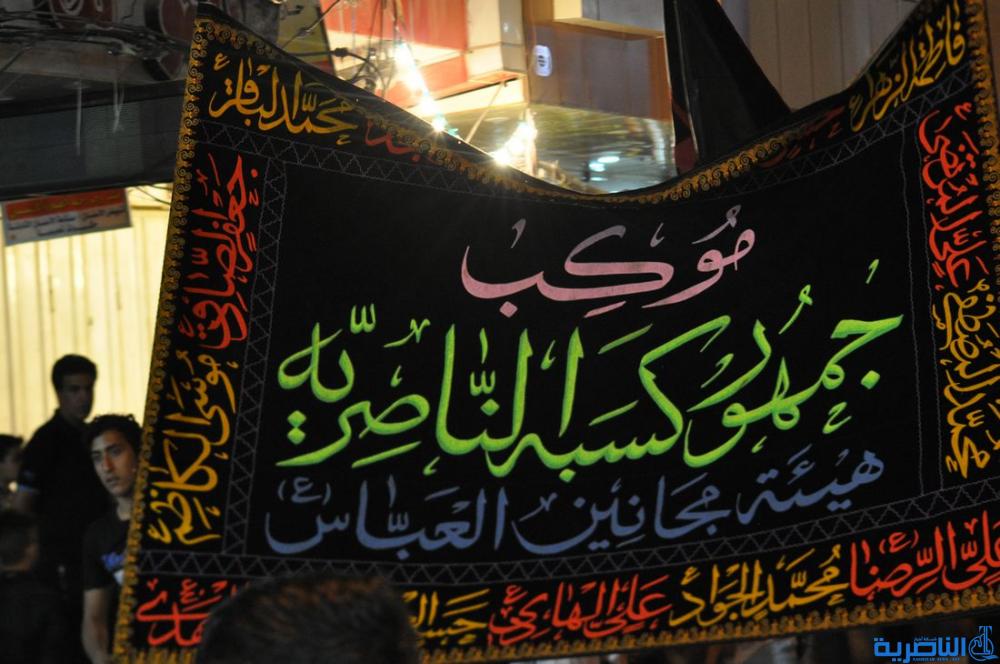 فاطمة الزهراء
محمد الباقر
موكب
جمهور كسبة الناصرية
هيئة مجانين العباس (ع)
جعفر الصادق
موسى الكاظم
محمد المصطفى
علي المرتضى
علي الرضا
محمد الجواد
علي الهادي
الناصرية